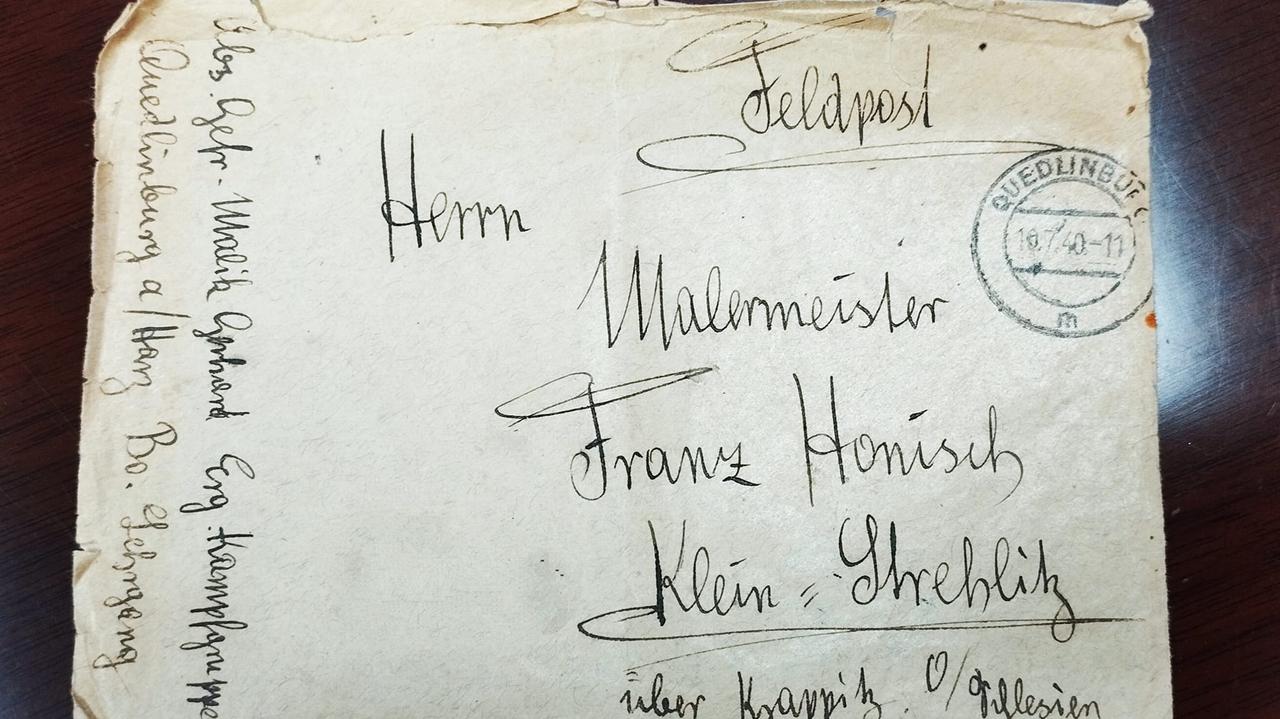 Feldpost
Herrn
Malermeister
Franz Honisch
Klein=Strehlitz
über Krappitz O/Schlesien
QUEDLINBUR
10.7.40-11
m
Abs. Gefr. Malik Gerhard Erg. Kampfgruppe
Quedlinburg a/Harz Bo. Lehrgang